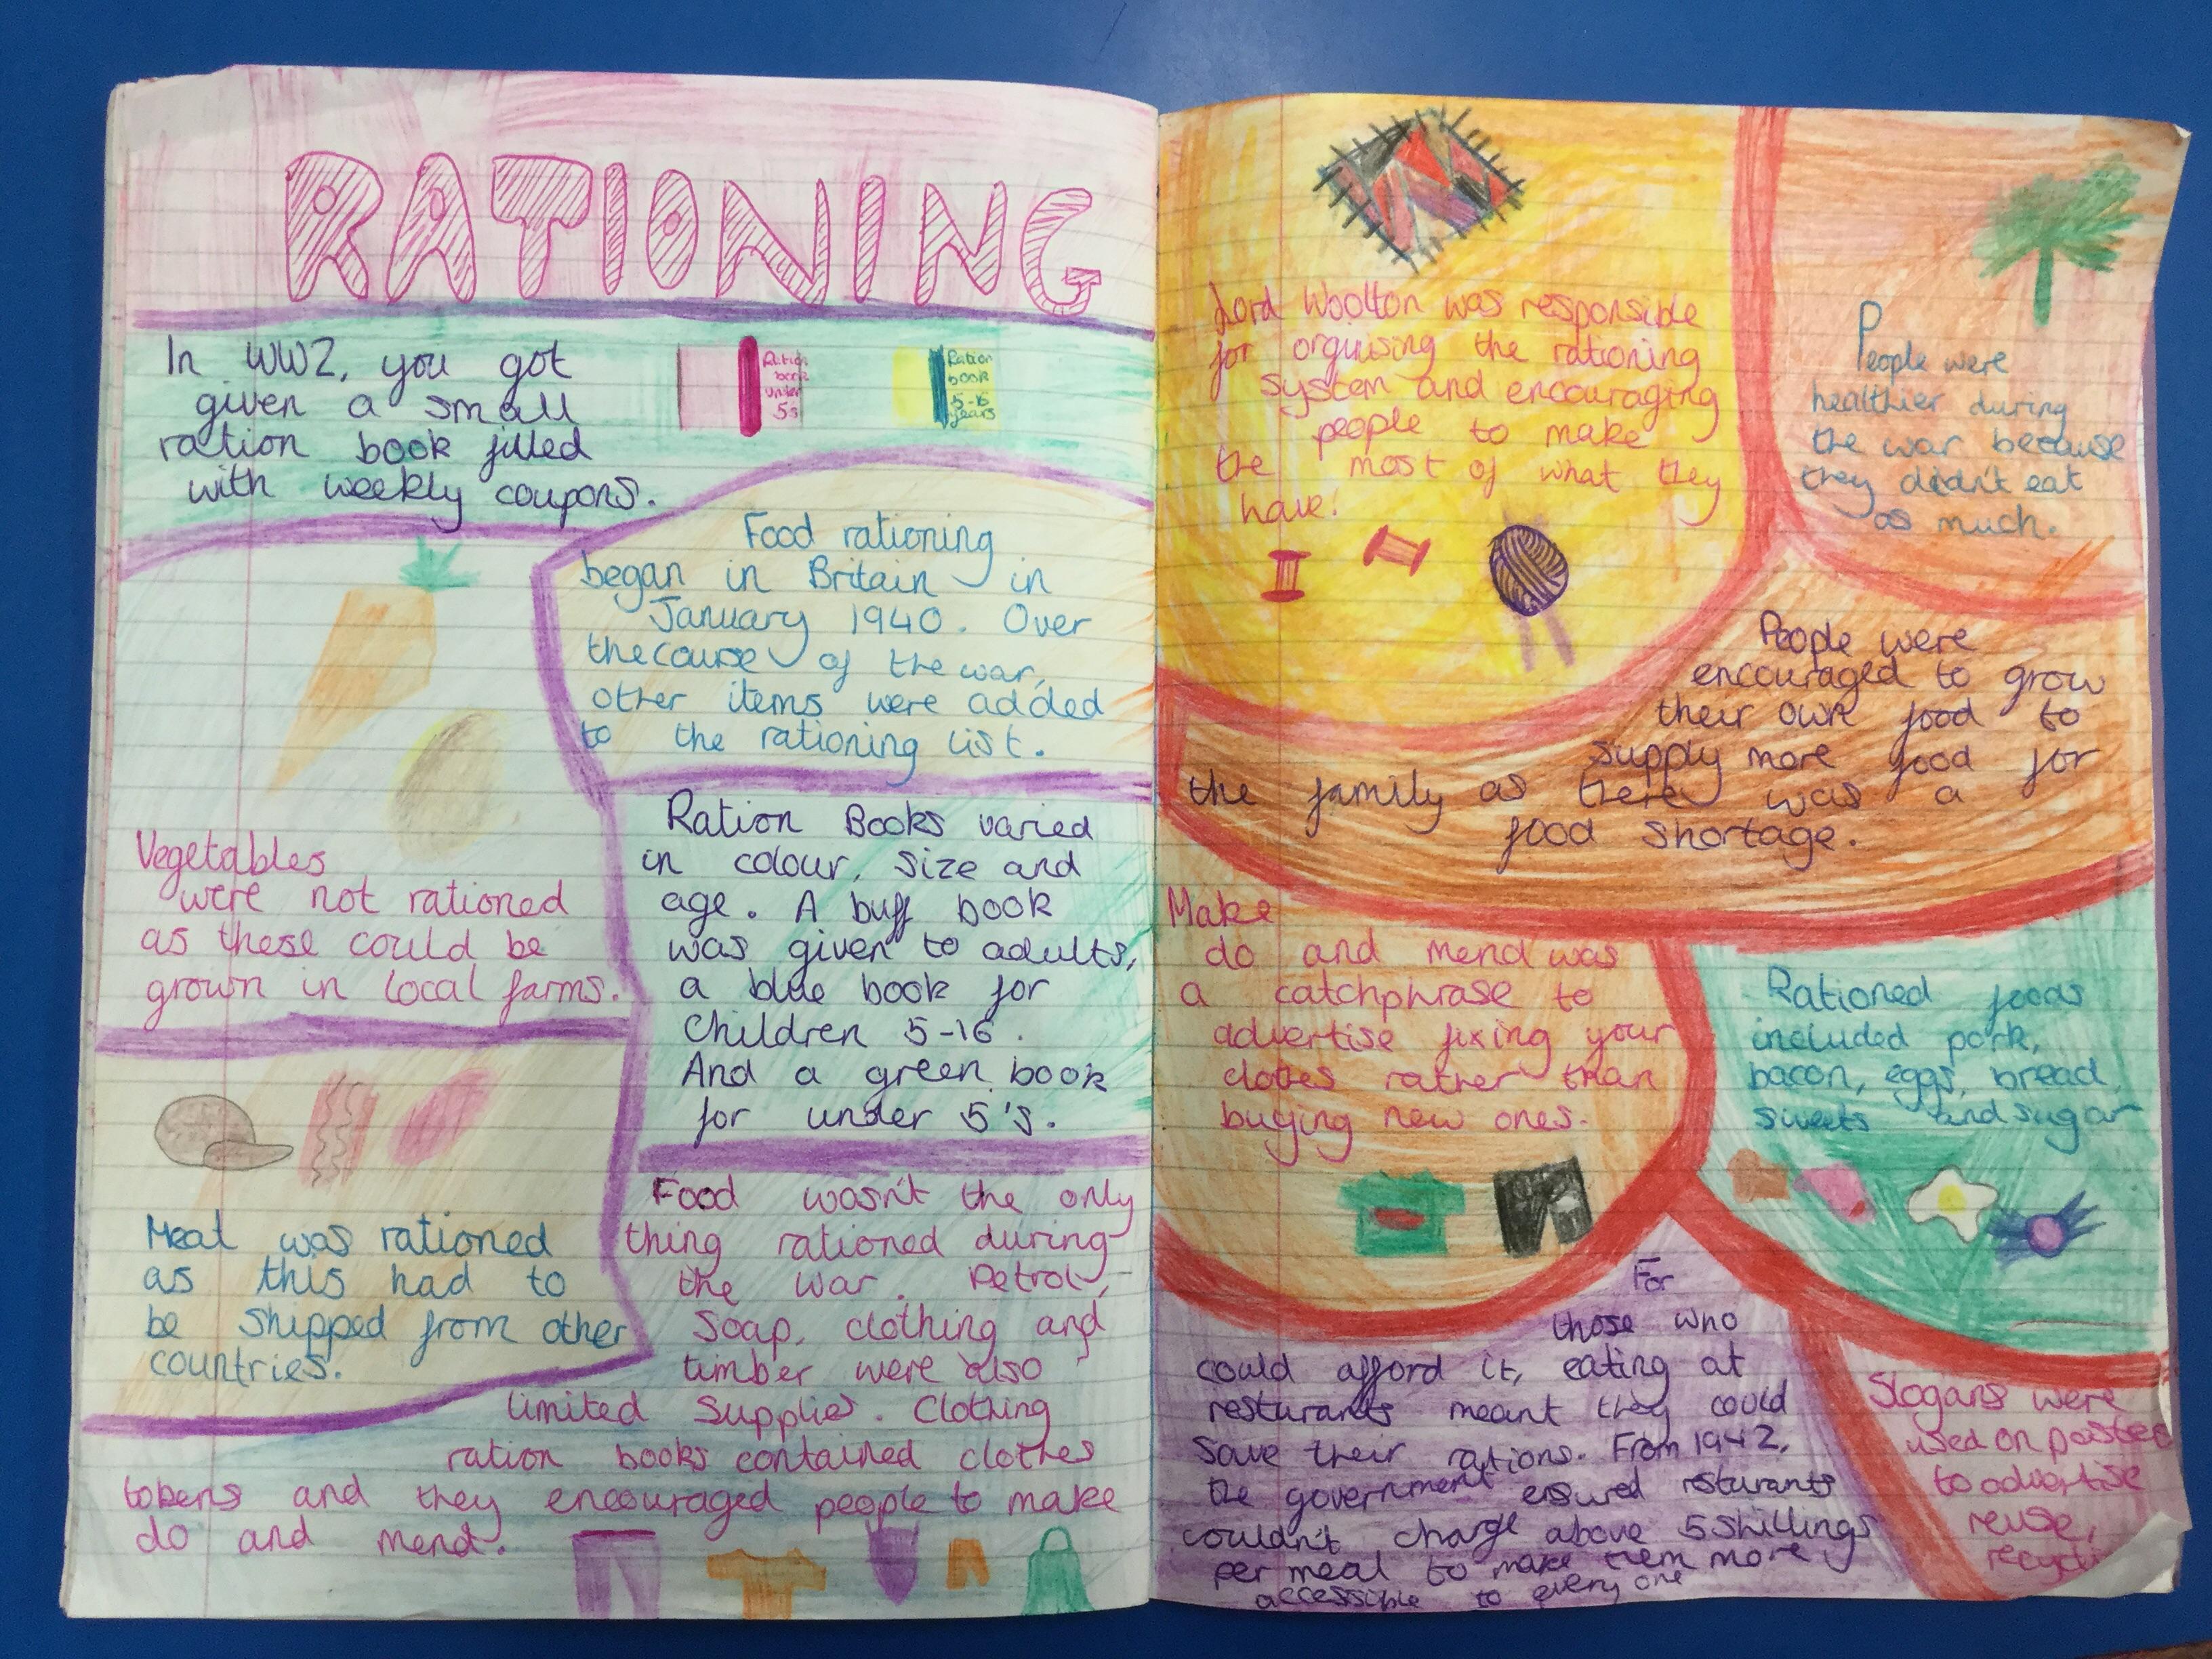 RATIONING
In WW2, you got
given a small
ration book filled
with weekly coupons.
Ration
book
under
5s
Ration
book
5-16
years
Food rationing
began in Britain in
January 1940. Over
the course of the war,
other items were added
to the rationing list.
Vegetables
were not rationed
as these could be
grown in local farms.
Ration Books varied
in colour, size and
age. A buff book
was given to adults,
a blue book for
Children 5-16.
And a green book
for under 5's.
Meat was rationed
as this had to
be shipped from other
countries.
Food wasn't the only
thing rationed during
the war. Petrol,
Soap, clothing and
timber were also
limited supplies. Clothing
ration books contained clothes
tokens and they encouraged people to make
do and mend.
Lord Woolton was responsible
for orgiusing the rationing
system and encouraging
people to make
the most of what they
have!
People were
healthier during
the war because
they didn't eat
as much.
People were
encouraged to grow
their own food to
supply more food for
the family as there was a
food shortage.
Make
do and mend was
a catchphrase to
advertise fixing your
clothes rather than
buying new ones.
Rationed foods
included pork,
bacon, eggs, bread,
sweets and sugar
For
those who
could afford it, eating at
resturants meant they could
save their rations. From 1942,
the government ensured resturants
couldn't charge above 5 shillings
per meal to make them more
accessible to every one
Slogans were
used on poster
to advertise
reuse,